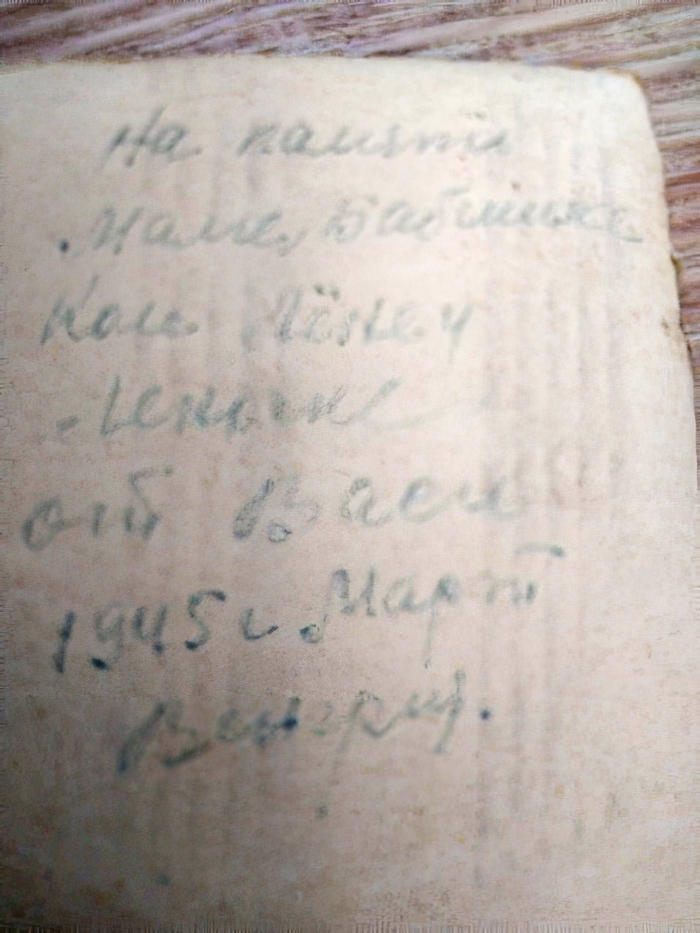 На память
Маме, Бабушке
Коле Лёне и
от Васи
1945 г. Март
Венгрия.